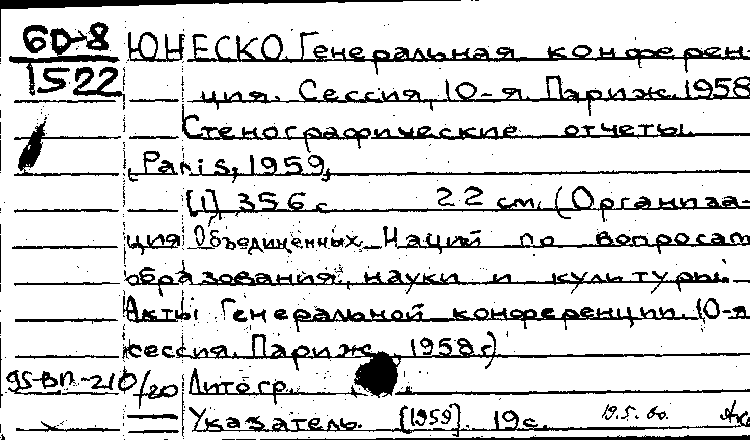 6D-8
1522
ЮНЕСКО. Генеральная конферен-
ция. Сессия, 10-я. Париж. 1958
Стенографические отчеты.
[Paris, 1959,
[1], 356 с 22 см. (Организа-
ция Объединенных Наций по вопросам
образования, науки и культуры.
Акты Генеральной конференции. 10-я
сессия. Париж, 1958 г.)
95-ВП-210/20 Литогр.
Указатель. [1959]. 19 с. 19.5.60.